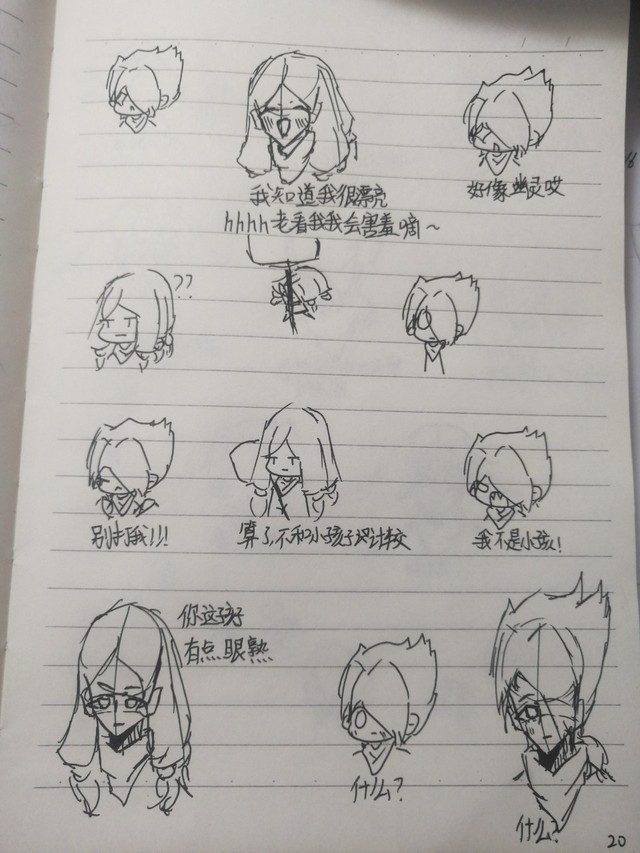 我知道我很漂亮
hhhh老看我我会害羞嘀~
好像幽灵哎
??
别打我!!!
算了,不和小孩子计较
我不是小孩!
你这孩子
有点眼熟
什么?
什么?
20